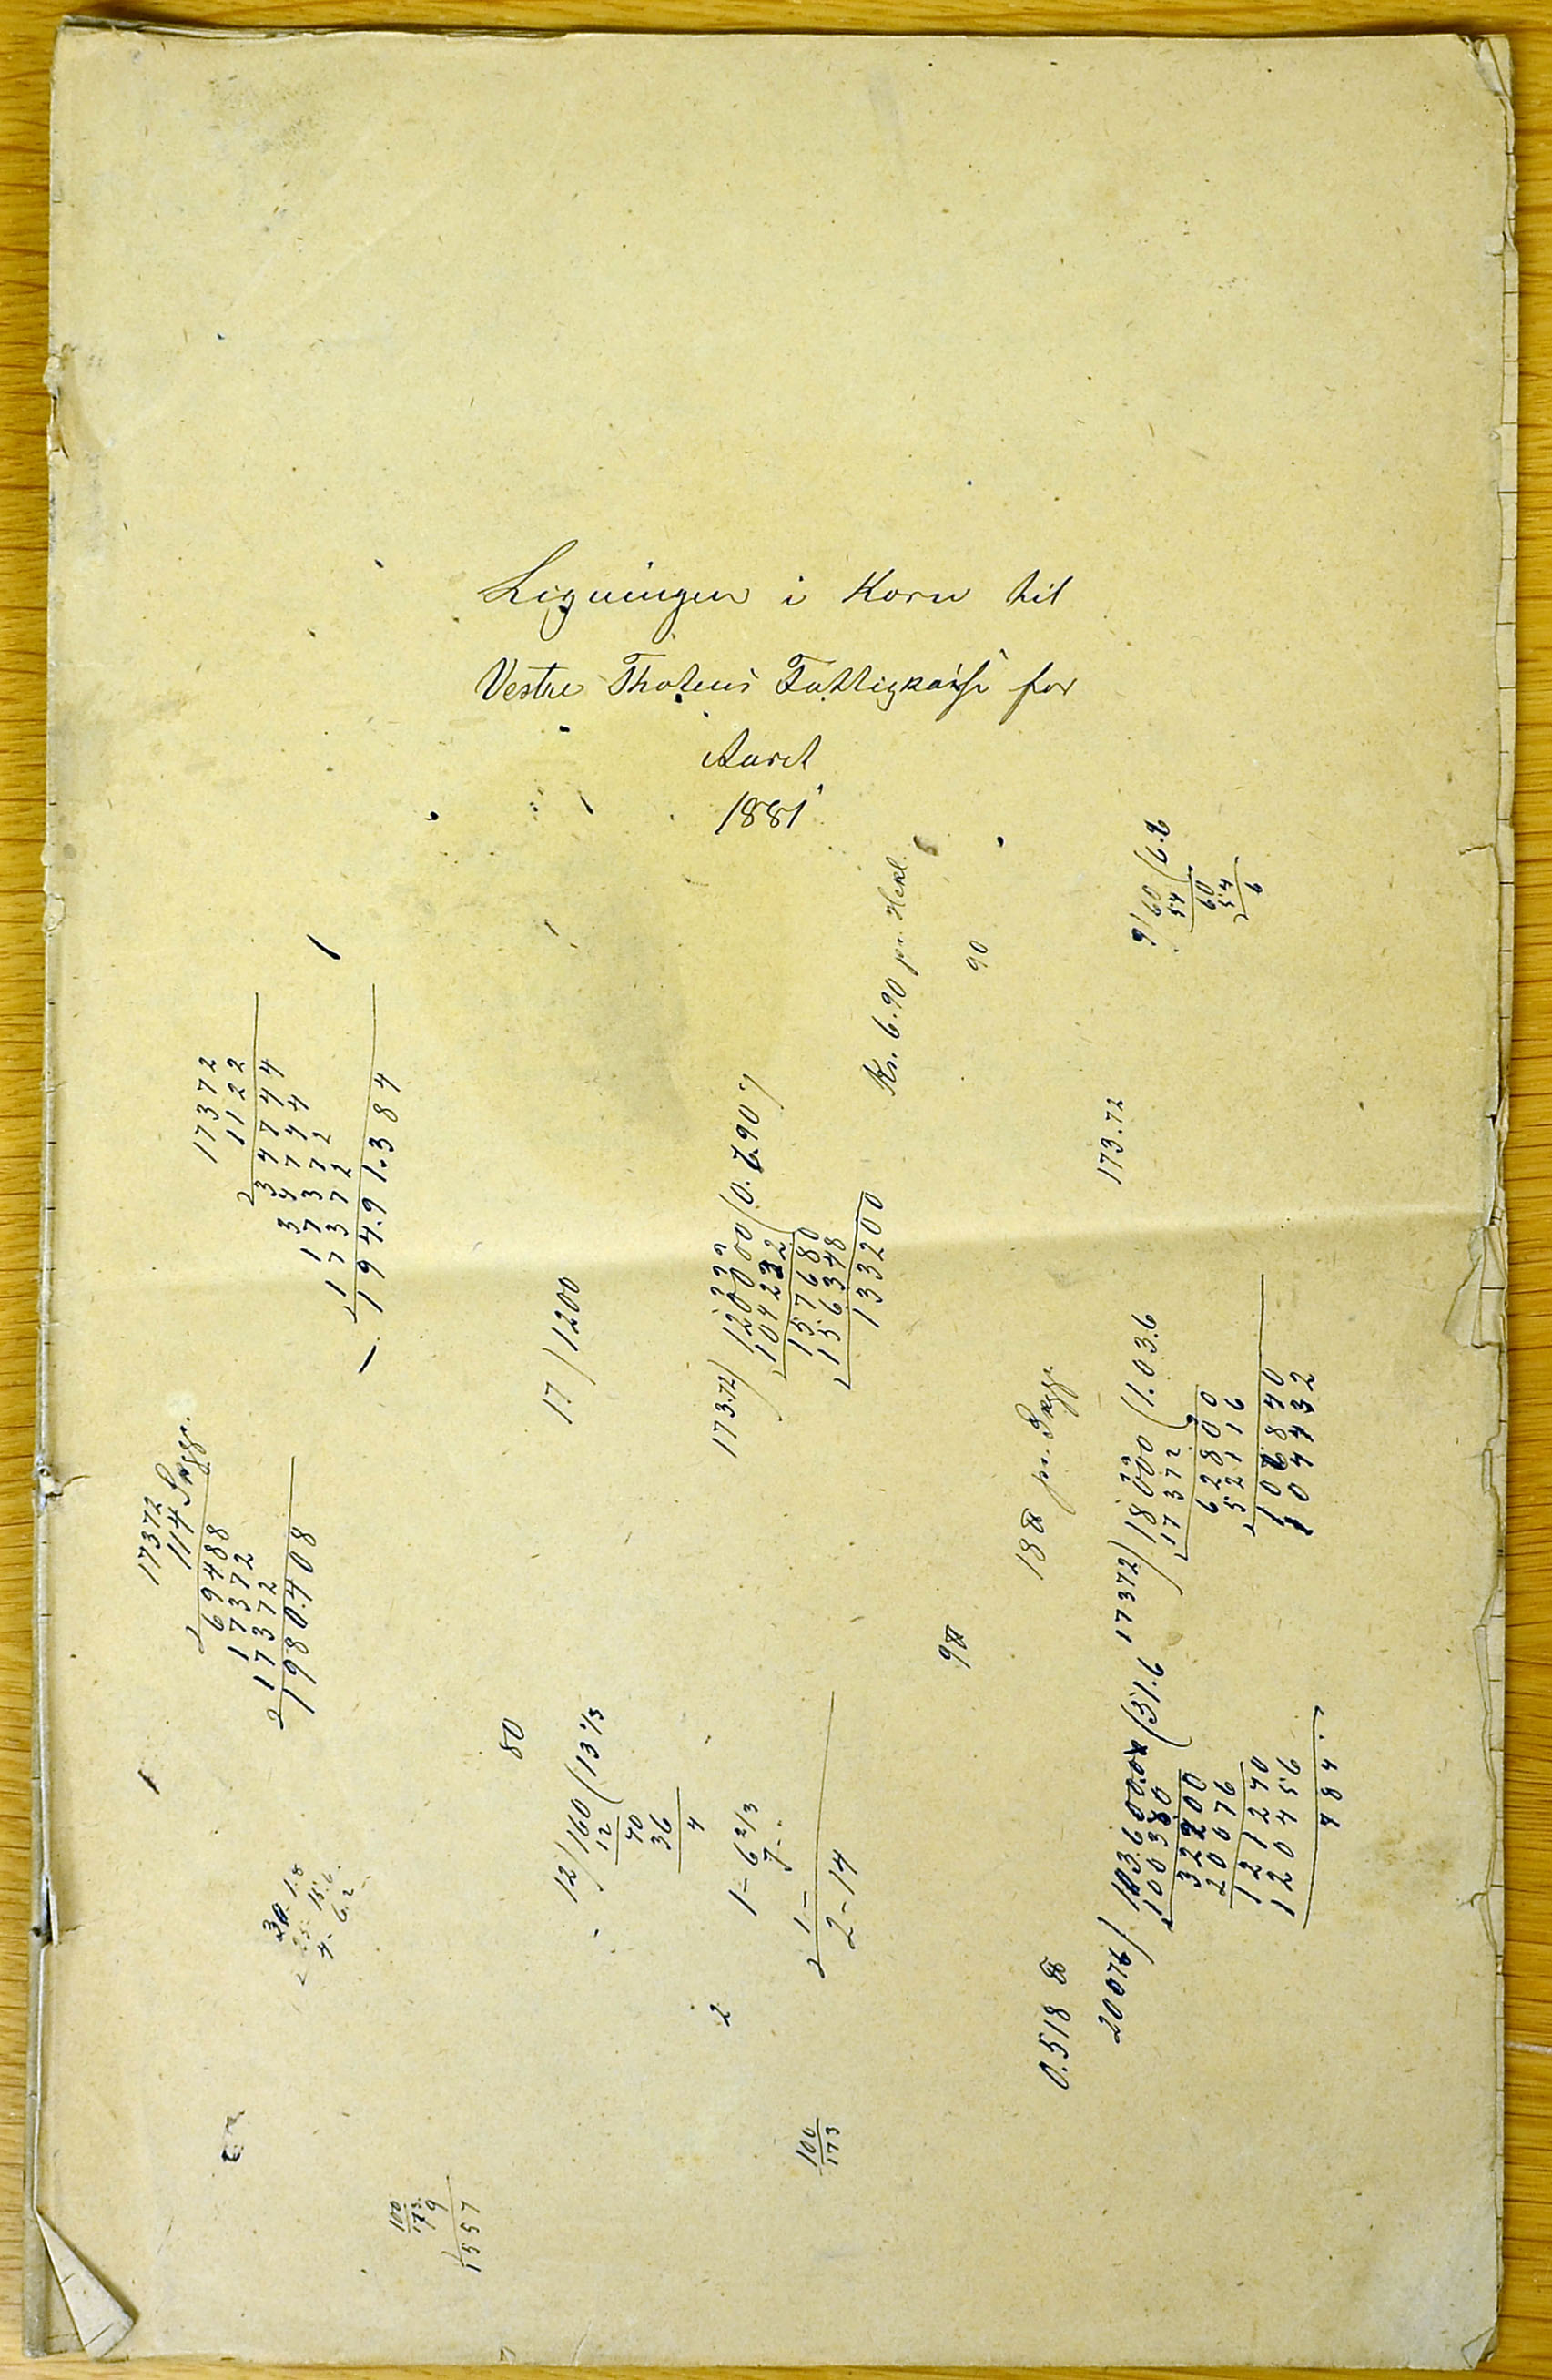 Ligningen i Korn til
Vestre Thotens Fattigkasse for
Aaret
1881
17372
1122
34744
34744
17372
17372
19491.384
17372
114 Skgr.
69488
17372
17372
1980.408
17/1200
173.72/120000(0.6907
104232
157680
156348
133200
Kr. 6.90 pr. Hekl.
90
9/60(6.6
54
60
54
6
173.72
80
12/160(13 1/3
12
40
36
4
1 - 6 2/3
7 -
1 -
2 - 14
2
9 ℔
18 ℔ pr. Skgr.
17372/18000(1.036
17372
62800
52116
106840
104432
0.518 ℔
20076/103600.00(51.6
100380
32200
20076
121240
120456
784.
100
173
9
1557
100
173